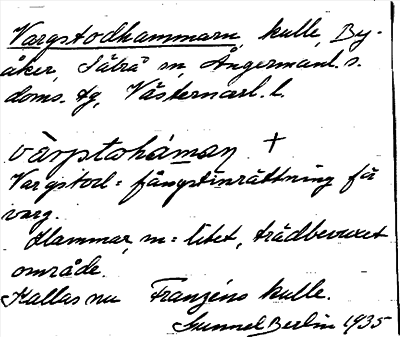 Vargstodhammarn, kulle, By-
åker, Sätrå sn, Ångermanl. s.
doms. tg, Västernorl. l.
+
Vargstod = fångstinrättning för
varg.
Hammar, m = litet, trädbevuxet
område.
Kallas nu Franzéns kulle.
Gunnel Berlin 1935